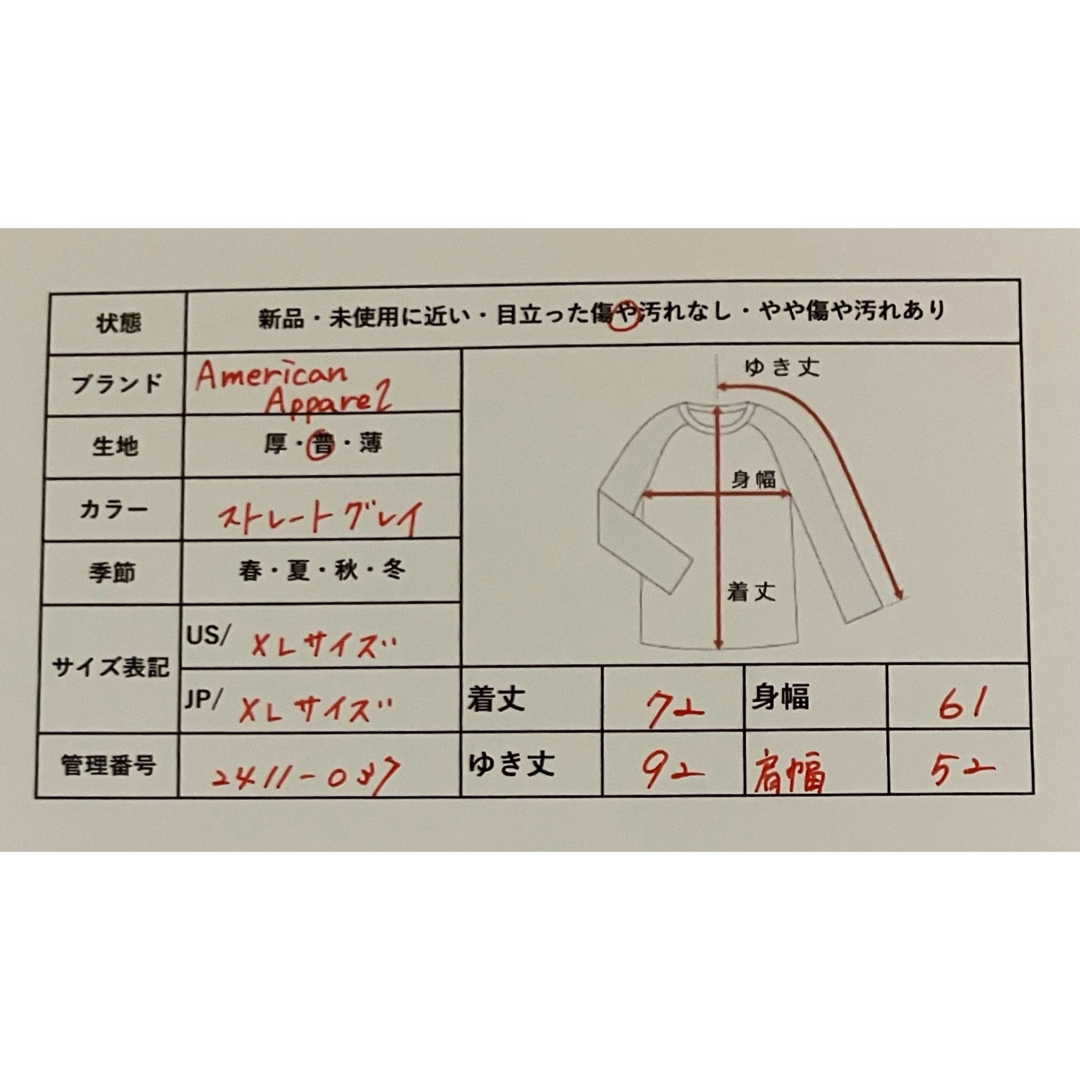 状態 新品・未使用に近い・目立った傷や汚れなし・やや傷や汚れあり
ブランド American
Apparel
生地 厚・普・薄
カラー ストレートグレイ
季節 春・夏・秋・冬
サイズ表記 US/ XLサイズ
JP/ XLサイズ
管理番号 2411-037
ゆき丈
身幅
着丈
着丈 72 身幅 61
ゆき丈 92 肩幅 52